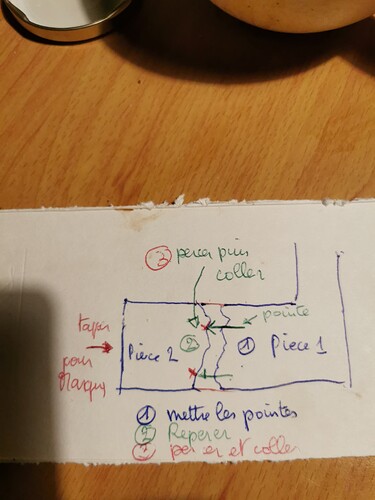 ③ percer puis
coller
pointe
taper
pour
Pièce 2
②
① Pièce 1
① mettre les pointes
② Reperer
③ percer et coller